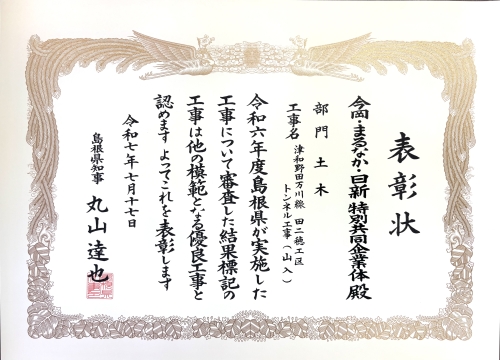 表彰状
今岡・まるなか・日新 特別共同企業体 殿
部門 土木
工事名 津和野田万川線 田二穂工区
トンネル工事（山入）
令和六年度島根県が実施した
工事について審査した結果標記の
工事は他の模範となる優良工事と
認めます よってこれを表彰します
令和七年七月十七日
島根県知事 丸山達也